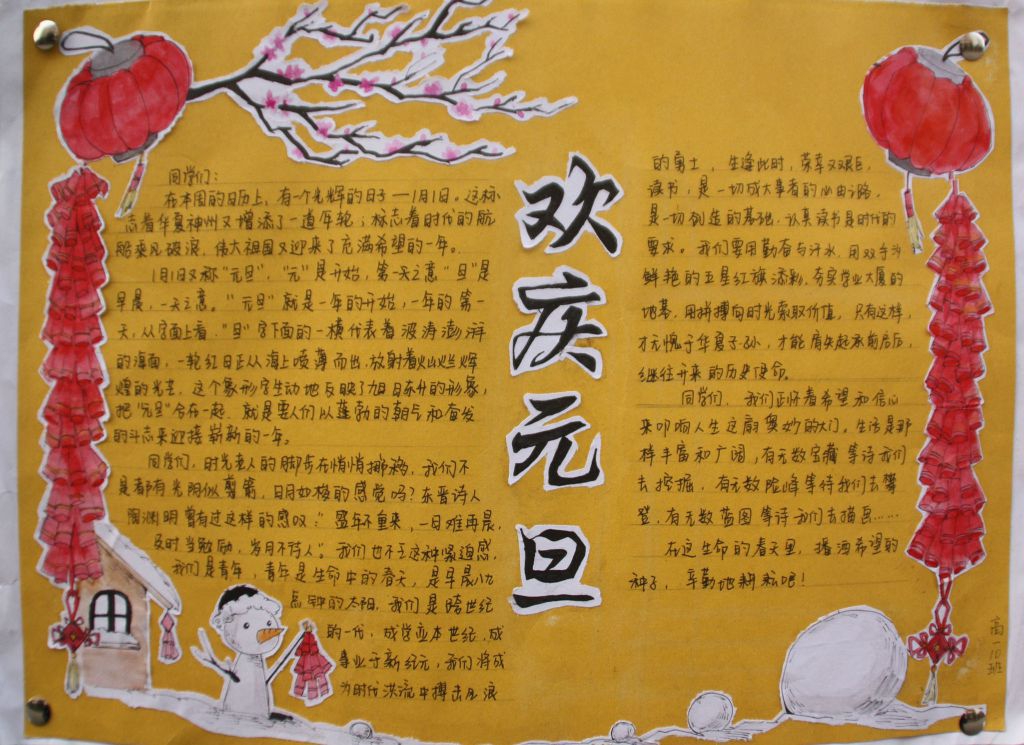 同学们：
在本周的日历上，有一个光辉的日子——1月1日。这标
志着华夏神州又增添了一道年轮；标志着时代的航
船乘风破浪，伟大祖国又迎来了充满希望的一年。
1月1日又称“元旦”，“元”是开始，第一天之意“旦”是
早晨，一天之意。“元旦”就是一年的开始，一年的第一
天，从字面上看，“旦”字下面的一横代表着波涛澎湃
的海面，一轮红日正从海上喷薄而出，放射着火山火烂辉
煌的光芒，这个象形字生动地反映了旭日东升的形象，
把“元旦”合在一起，就是要人们以蓬勃的朝气和奋发
的斗志来迎接崭新的一年。
同学们，时光老人的脚步在悄悄挪移，我们不
是都有光阴似剪箭，日月如梭的感觉吗？东晋诗人
陶渊明曾有过这样的感叹：“盛年不重来，一日难再晨，
及时当勉励，岁月不待人”。我们也不乏这种紧迫感，
我们是青年，青年是生命中的春天，是早晨八九
点钟的太阳，我们是跨世纪
的一代，成学业本世纪，成
事业于新纪元，我们将成
为时代洪流中搏击风浪
欢庆元旦
的勇士，生逢此时，荣幸又艰巨，
读书，是一切成大事者的必由之路，
是一切创造的基础，认真读书是时代的
要求。我们要用勤奋与汗水，用双手为
鲜艳的五星红旗添彩，夯实学业大厦的
地基，用拼搏向时光索取价值，只有这样，
才无愧于华夏子孙，才能肩负起承前启后，
继往开来的历史使命。
同学们，我们正怀着希望和信心
来叩响人生这扇奥妙的大门。生活是那
样丰富和广阔，有无数宝藏等待我们
去挖掘，有无数险峰等待我们去攀
登，有无数蓝图等待我们去描画……
在这生命的春天里，播洒希望的
种子，辛勤地耕耘吧！
高一10班